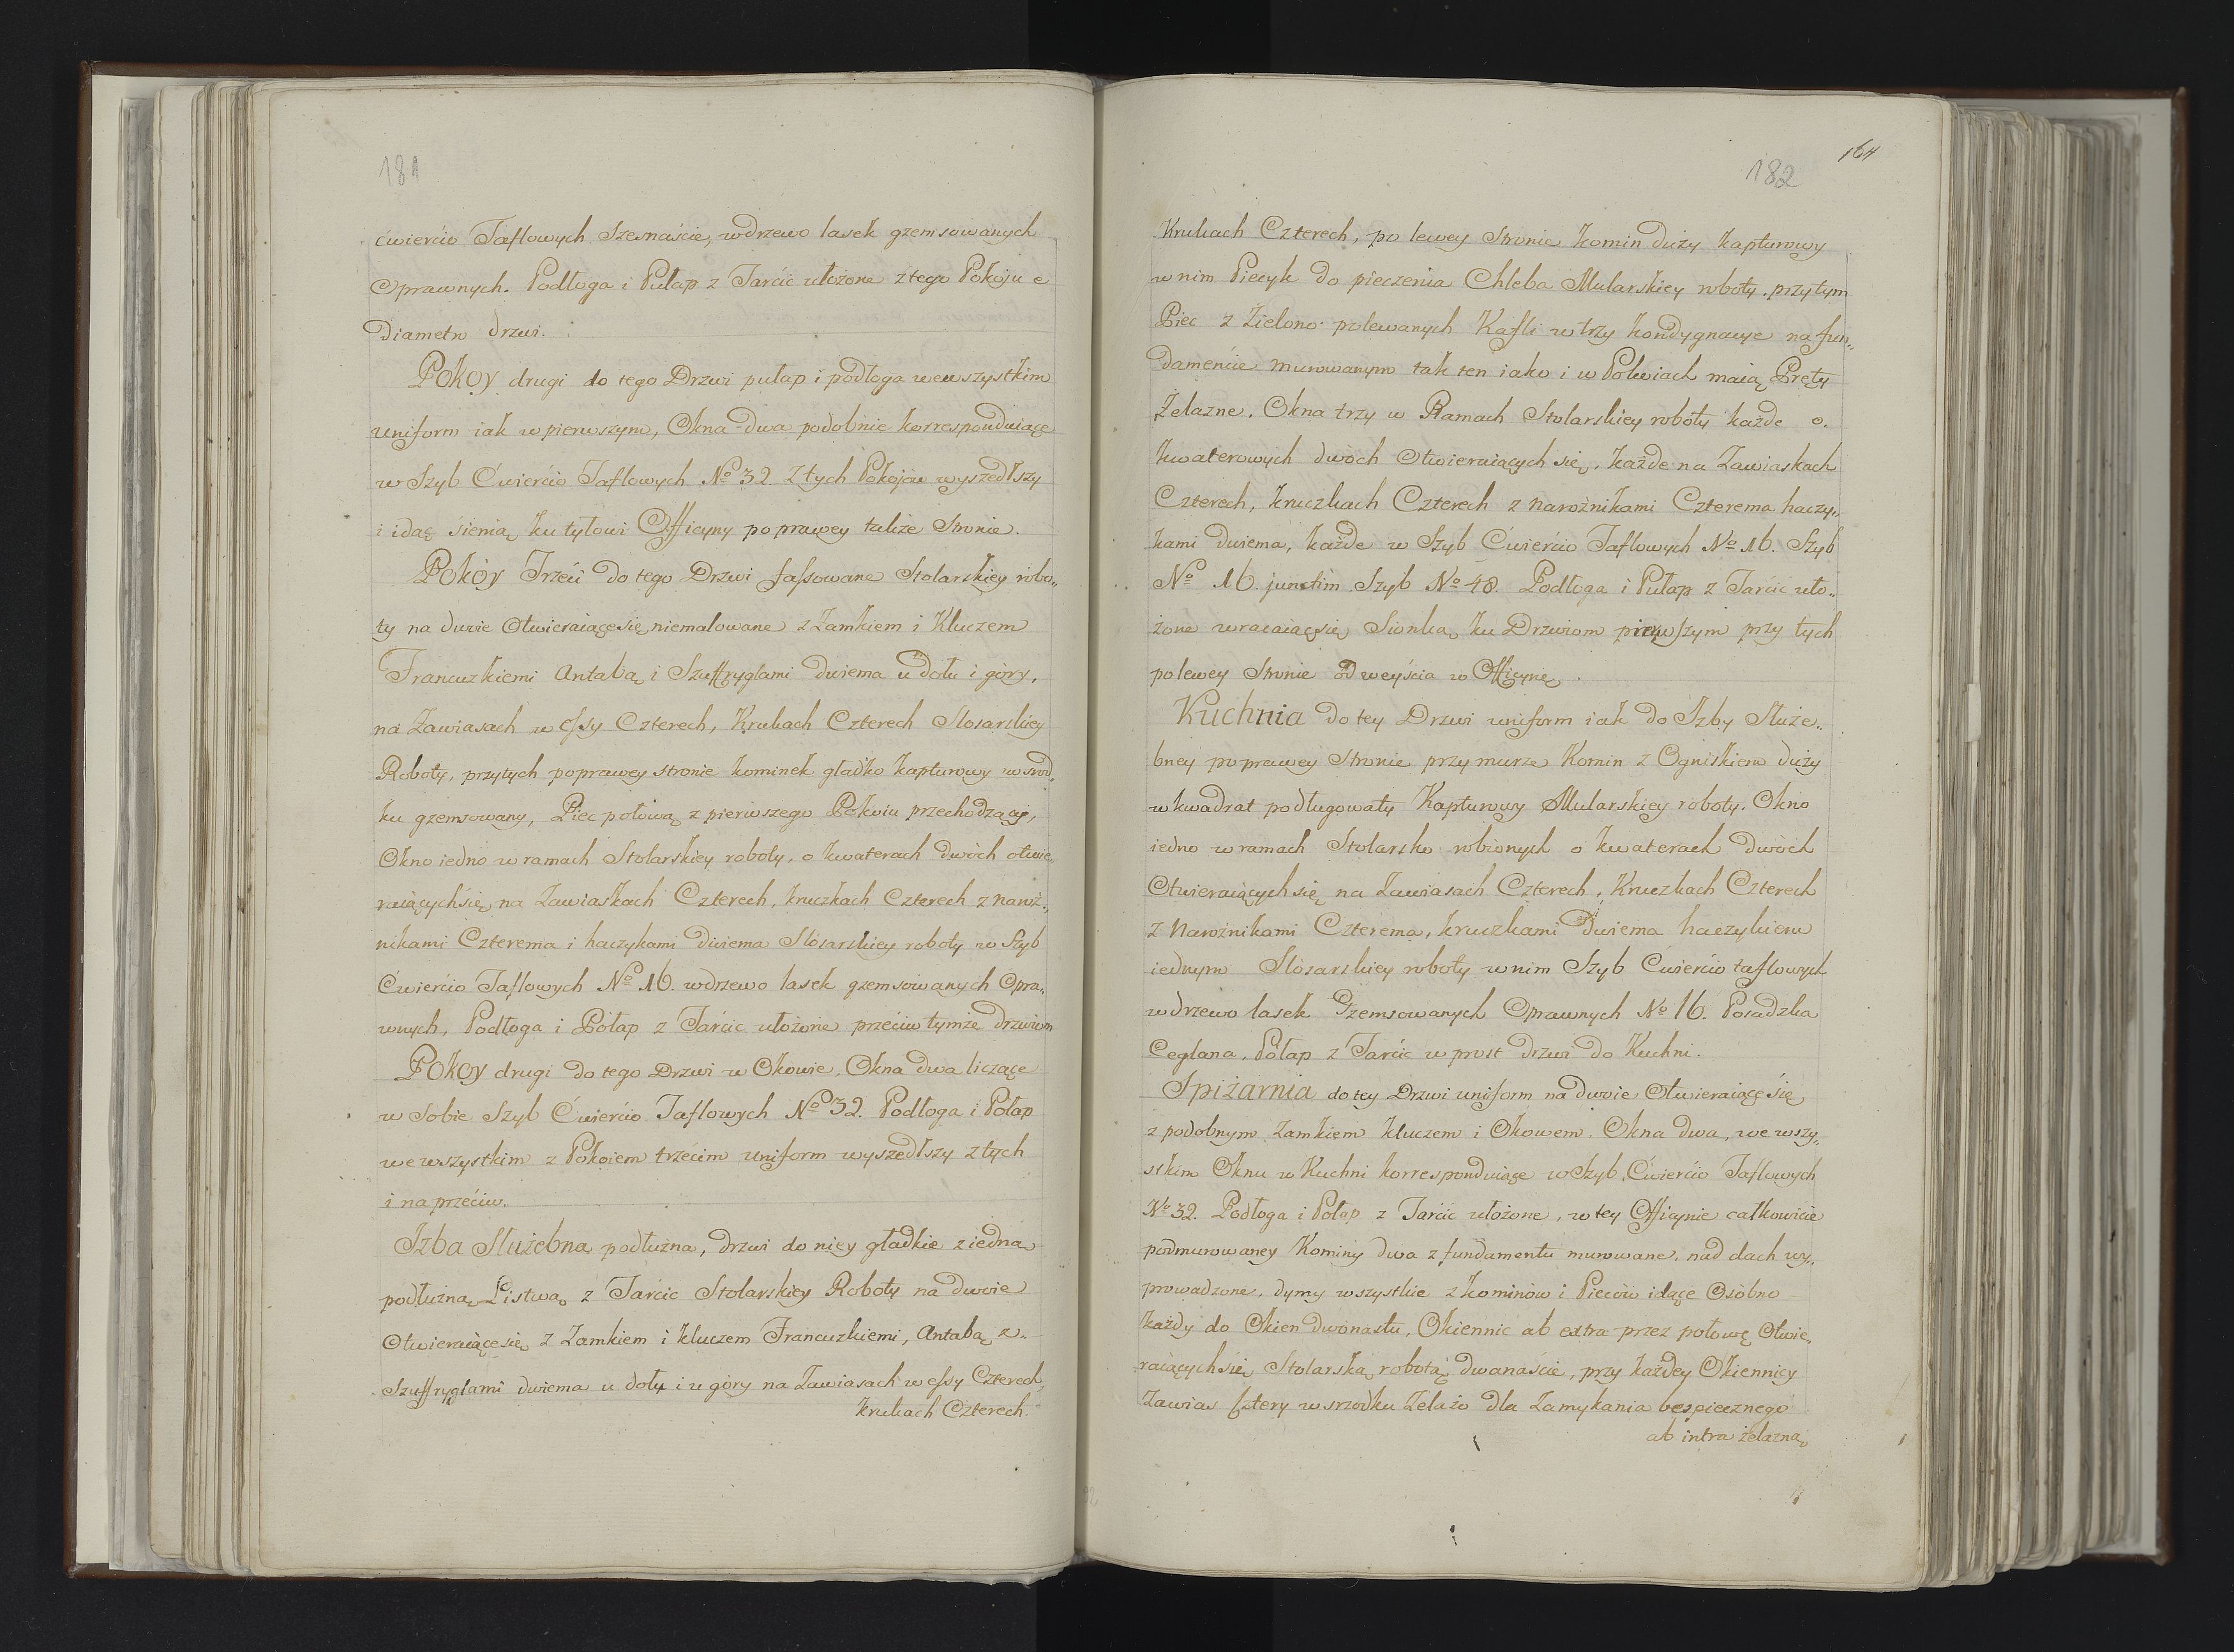 181
ćwierćio Taflowych Szesnaście, w drzewo lasek gzemsowanych
Oprawnych. Podłoga i Pułap z Tarćic ułożone z tego Pokoju e
Diametro drzwi.
Pokoy drugi do tego Drzwi pułap i podłoga we wszystkim
uniform iak w pierwszym, Okna dwa podobnie korresponduiące
w Szyb Ćwierćio Taflowych No 32. Z tych Pokojów wyszedłszy
i idąc sienią ku tyłowi Officyny po prawey także Stronie.
Pokóy Trzeći do tego Drzwi fassowane Stolarskiey robo„
ty na dwie Otwieraiące się niemalowane z Zamkiem i Kluczem
Francuzkiemi Antabą i Szuffryglami dwiema u dołu i góry,
na Zawiasach w essy Czterech, Krukach Czterech Slosarskiey
Roboty, przytych po prawey stronie kominek gładko kapturowy w środ„
ku gzemsowany, Piec połową z pierwszego Pokoiu przechodzący,
Okno iedno w ramach Stolarskiey roboty, o kwaterach dwóch otwie„
raiących się, na Zawiaskach Czterech, kruczkach Czterech z naroż„
nikami Czterema i haczykami dwiema Slósarskiey roboty w Szyb
Ćwierćio Taflowych No 16. w drzewo lasek gzemsowanych Opra„
wnych, Podłoga i Półap z Tarćic ułożone przećiw tymże drzwiom
Pokoy drugi do tego Drzwi w Okowie. Okna dwa liczące
w Sobie Szyb Ćwierćio Taflowych No 32. Podłoga i Połap
we wszystkim z Pokoiem trzećim uniform wyszedłszy z tych
i na przećiw.
Izba Służebna podłużna, drzwi do niey gładkie z iedną
podłużną Listwą z Tarćic Stolarskiey Roboty na dwoie
Otwieraiące się z Zamkiem i kluczem Francuzkiemi, Antabą z„
Szuffryglami dwiema u dołu i u góry na Zawiasach w essy Czterech
krukach Czterech.
164
182
Krukach Czterech, po lewey Stronie Komin duży kapturowy
w nim Piecyk do pieczenia Chleba Mularskiey roboty. przytym
Piec z Zielono polewanych Kafli w trzy kondygnacye na fun„
damenćie murowanym tak ten iako i w Pokoiach maią Pręty
Żelazne. Okna trzy w Ramach Stolarskiey roboty każde o.
kwaterowych dwóch Otwieraiących się, każde na Zawiaskach
Czterech, kruczkach Czterech z narożnikami Czterema haczy„
kami dwiema, każde w Szyb Ćwierćio Taflowych No 16. Szyb
No 16. junctim Szyb No 48. Podłoga i Pułap z Tarćic uło„
żone wracaiąc się Sionką ku Drzwiom pierwszym przy tych
po lewey Stronie Od weyścia w Officynę.
Kuchnia do tey Drzwi uniform iak do Izby Służe„
bney po prawey Stronie przy murze Komin z Ogniskiem duży
w kwadrat podługowaty Kapturowy Mularskiey roboty. Okno
iedno w ramach Stolarsko robionych o kwaterach dwóch
Otwieraiących się na Zawiasach Czterech, Kruczkach Czterech
z Narożnikami Czterema, kruczkami Dwiema haczykiem
iednym Slósarskiey roboty w nim Szyb Ćwierćio taflowych
w drzewo lasek Gzemsowanych Oprawnych No 16. Posadzka
Ceglana, Półap z Tarćic w prost drzwi do Kuchni.
Spiżarnia do tey Drzwi uniform na dwoie Otwieraiące się
z podobnym Zamkiem kluczem i Okowem. Okna dwa, we wszy„
stkim Oknu w Kuchni korresponduiące w Szyb Ćwierćio Taflowych
No 32. Podłoga i Połap z Tarćic ułożone, w tey Officynie całkowicie
podmurowaney Kominy dwa z fundamentu murowane. nad dach wy„
prowadzone, dymy wszystkie z kominów i Pieców idące Osóbno
każdy do Okien dwonastu, Okiennic ab extra przez połowę Otwie„
raiących się Stolarską robotą dwanaście, przy każdey Okiennicy
Zawias Cztery w srzodku Zelazo dla Zamykania bespiecznego
ab intra żelazną